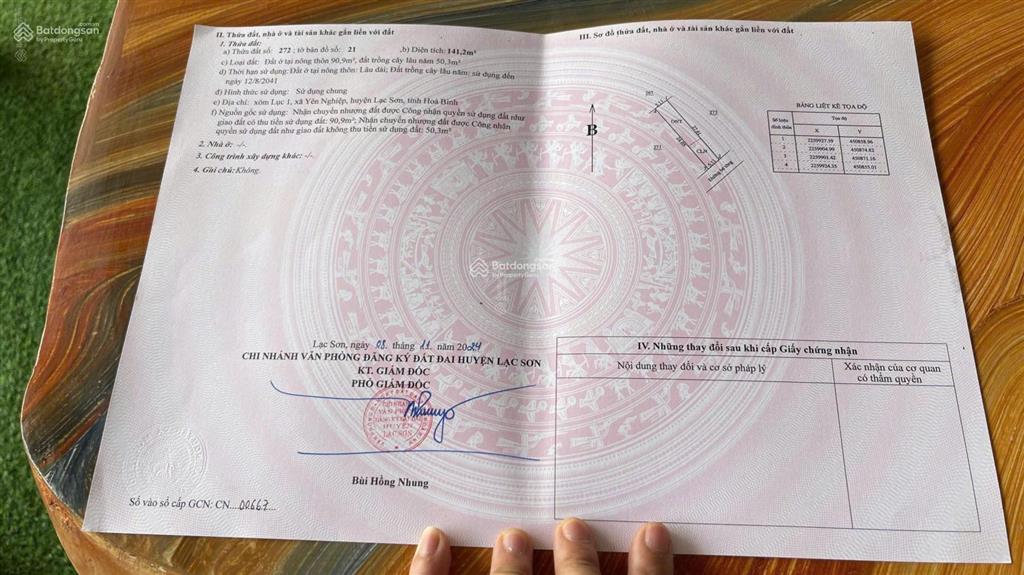 Batdongsan
by PropertyGuru
II. Thửa đất, nhà ở và tài sản khác gắn liền với đất
1. Thửa đất:
a) Thửa đất số: 272 ; tờ bản đồ số: 21 ,b) Diện tích: 141,2m²
c) Loại đất: Đất ở tại nông thôn 90,9m², đất trồng cây lâu năm 50,3m²
d) Thời hạn sử dụng: Đất ở tại nông thôn: Lâu dài; Đất trồng cây lâu năm: sử dụng đến
ngày 12/8/2041
đ) Hình thức sử dụng: Sử dụng chung
e) Địa chỉ: xóm Lục 1, xã Yên Nghiệp, huyện Lạc Sơn, tỉnh Hoà Bình
f) Nguồn gốc sử dụng: Nhận chuyển nhượng đất được Công nhận quyền sử dụng đất như
giao đất có thu tiền sử dụng đất: 90,9m²; Nhận chuyển nhượng đất được Công nhận
quyền sử dụng đất như giao đất không thu tiền sử dụng đất: 50,3m²
2. Nhà ở: -/-
3. Công trình xây dựng khác: -/-
4. Ghi chú: Không.
Lạc Sơn, ngày 08 tháng 11 năm 2024
CHI NHÁNH VĂN PHÒNG ĐĂNG KÝ ĐẤT ĐAI HUYỆN LẠC SƠN
KT. GIÁM ĐỐC
PHÓ GIÁM ĐỐC
HUYỆN
LẠC SƠN
Bùi Hồng Nhung
Số vào sổ cấp GCN: CN...00667...
III. Sơ đồ thửa đất, nhà ở và tài sản khác gắn liền với đất
B
273
271
ONT
CLN
Đường bê tông
BẢNG LIỆT KÊ TỌA ĐỘ
Số hiệu đỉnh thửa
Tọa độ
X Y
1 2259927.59 450858.06
2 2259904.99 450874.82
3 2259901.42 450871.16
4 2259924.35 450855.01
Batdongsan
by PropertyGuru
IV. Những thay đổi sau khi cấp Giấy chứng nhận
Nội dung thay đổi và cơ sở pháp lý
Xác nhận của cơ quan
có thẩm quyền
Batdongsan
by PropertyGuru